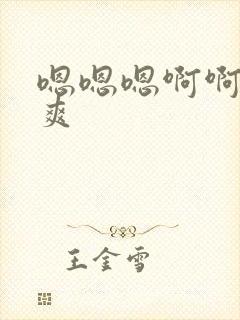 嗯嗯嗯啊啊
爽
王金雪